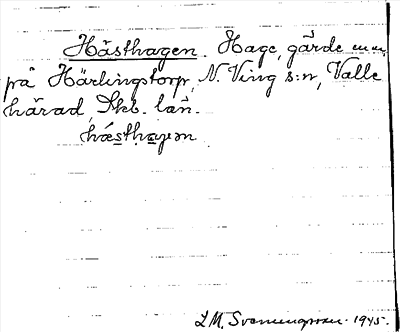 Hästhagen. Hage, gärde m.m.
på Härlingstorp, N. Ving s:n, Valle
härad, Skb. län.
hästhaγən
L M. Svenungsson. 1945.